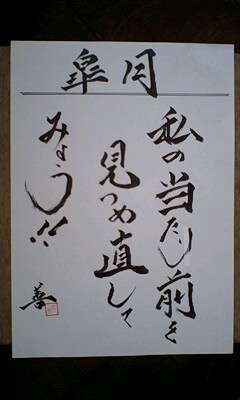 皐月
私の当たり前を
見つめ直して
みよう!!
善